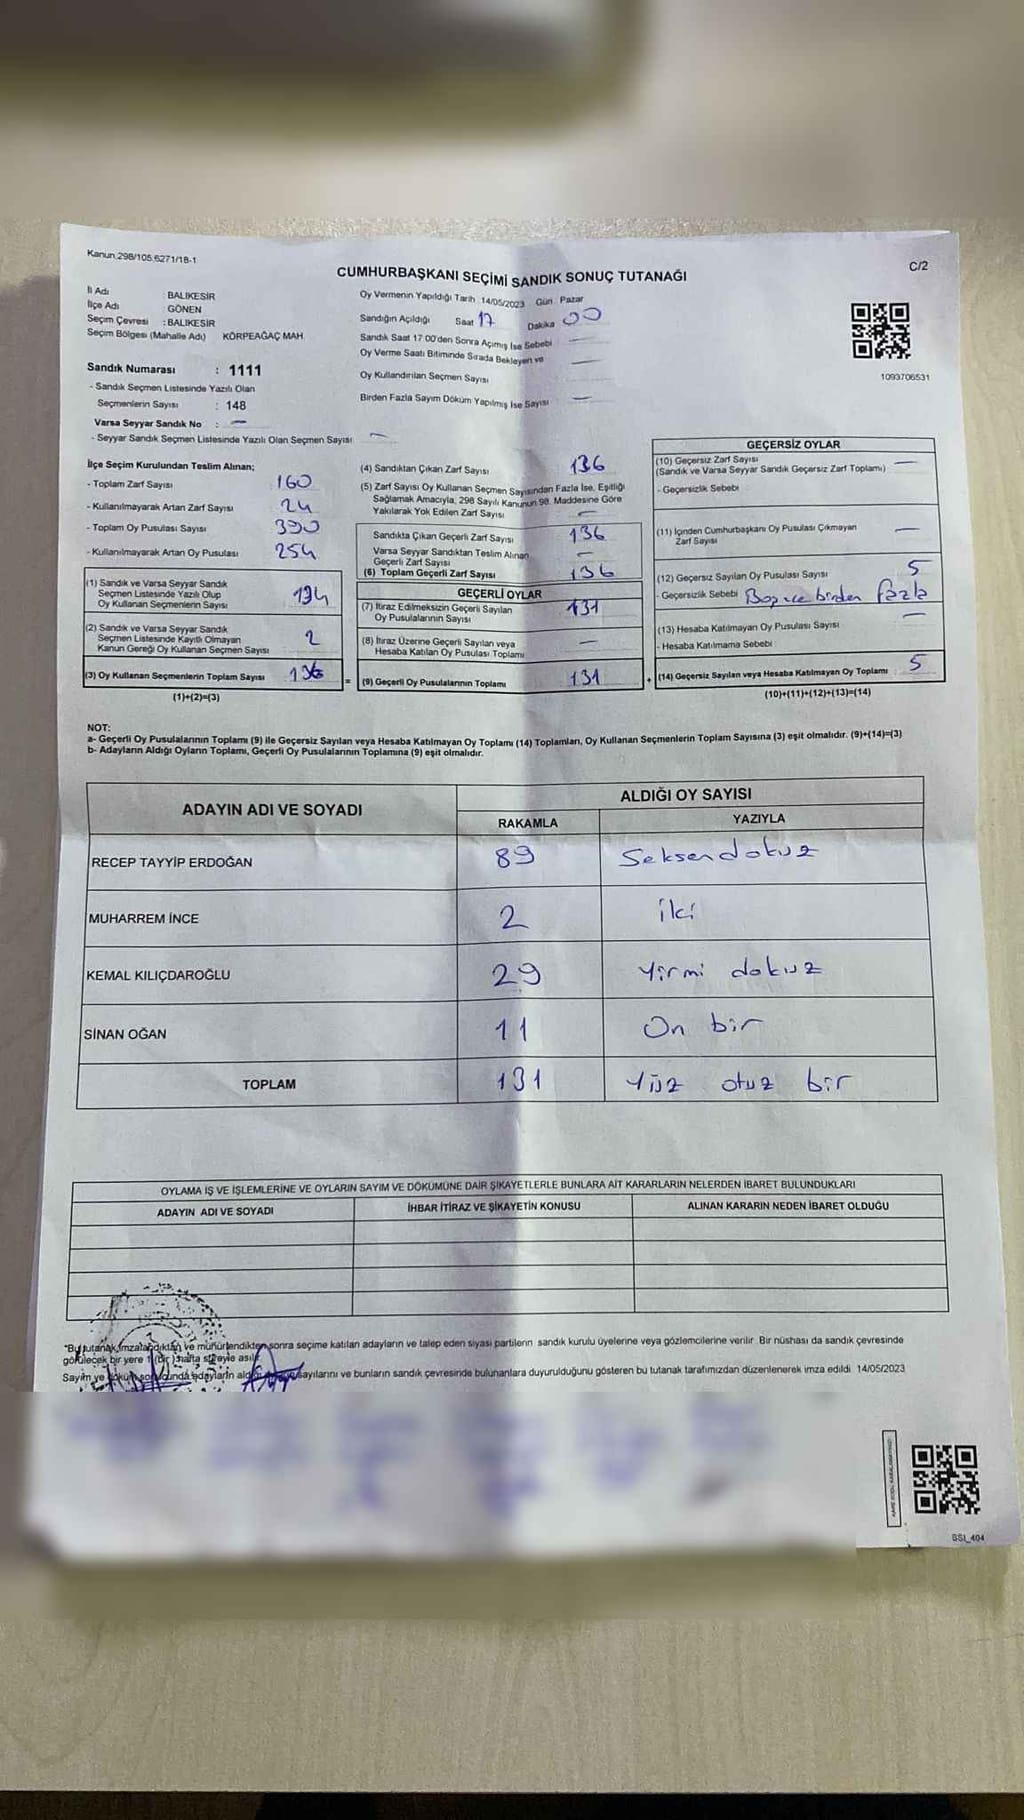 Kanun.298/105,6271/18-1
C/2
CUMHURBAŞKANI SEÇİMİ SANDIK SONUÇ TUTANAĞI
İl Adı : BALIKESİR
İlçe Adı : GÖNEN
Seçim Çevresi : BALIKESİR
Seçim Bölgesi (Mahalle Adı) KÖRPEAĞAÇ MAH.
Oy Vermenin Yapıldığı Tarih 14/05/2023 Gün : Pazar
Sandığın Açıldığı Saat 17 Dakika 00
Sandık Saat 17.00'den Sonra Açımış İse Sebebi —
Oy Verme Saati Bitiminde Sırada Bekleyen ve
Oy Kullandırılan Seçmen Sayısı —
Birden Fazla Sayım Döküm Yapılmış İse Sayısı —
1093706531
Sandık Numarası : 1111
- Sandık Seçmen Listesinde Yazılı Olan
Seçmenlerin Sayısı : 148
Varsa Seyyar Sandık No : —
- Seyyar Sandık Seçmen Listesinde Yazılı Olan Seçmen Sayısı —
İlçe Seçim Kurulundan Teslim Alınan;
- Toplam Zarf Sayısı 160
- Kullanılmayarak Artan Zarf Sayısı 24
- Toplam Oy Pusulası Sayısı 390
- Kullanılmayarak Artan Oy Pusulası 254
(1) Sandık ve Varsa Seyyar Sandık
Seçmen Listesinde Yazılı Olup
Oy Kullanan Seçmenlerin Sayısı 134
(2) Sandık ve Varsa Seyyar Sandık
Seçmen Listesinde Kayıtlı Olmayan
Kanun Gereği Oy Kullanan Seçmen Sayısı 2
(3) Oy Kullanan Seçmenlerin Toplam Sayısı 136
(1)+(2)=(3)
(4) Sandıktan Çıkan Zarf Sayısı 136
(5) Zarf Sayısı Oy Kullanan Seçmen Sayısından Fazla İse, Eşitliği
Sağlamak Amacıyla, 298 Sayılı Kanunun 98. Maddesine Göre
Yakılarak Yok Edilen Zarf Sayısı —
Sandıkta Çıkan Geçerli Zarf Sayısı 136
Varsa Seyyar Sandıktan Teslim Alınan
Geçerli Zarf Sayısı —
(6) Toplam Geçerli Zarf Sayısı 136
GEÇERLİ OYLAR
(7) İtiraz Edilmeksizin Geçerli Sayılan
Oy Pusulalarının Sayısı 131
(8) İtiraz Üzerine Geçerli Sayılan veya
Hesaba Katılan Oy Pusulası Toplamı —
= (9) Geçerli Oy Pusulalarının Toplamı 131 +
GEÇERSİZ OYLAR
(10) Geçersiz Zarf Sayısı
(Sandık ve Varsa Seyyar Sandık Geçersiz Zarf Toplamı) —
- Geçersizlik Sebebi
(11) İçinden Cumhurbaşkanı Oy Pusulası Çıkmayan
Zarf Sayısı —
(12) Geçersiz Sayılan Oy Pusulası Sayısı 5
- Geçersizlik Sebebi birden fazla
(13) Hesaba Katılmayan Oy Pusulası Sayısı —
- Hesaba Katılmama Sebebi
(14) Geçersiz Sayılan veya Hesaba Katılmayan Oy Toplamı 5
(10)+(11)+(12)+(13)=(14)
NOT:
a- Geçerli Oy Pusulalarının Toplamı (9) ile Geçersiz Sayılan veya Hesaba Katılmayan Oy Toplamı (14) Toplamları, Oy Kullanan Seçmenlerin Toplam Sayısına (3) eşit olmalıdır. (9)+(14)=(3)
b- Adayların Aldığı Oyların Toplamı, Geçerli Oy Pusulalarının Toplamına (9) eşit olmalıdır.
ADAYIN ADI VE SOYADI ALDIĞI OY SAYISI
RAKAMLA YAZIYLA
RECEP TAYYİP ERDOĞAN 89 Seksendokuz
MUHARREM İNCE 2 iki
KEMAL KILIÇDAROĞLU 29 Yirmi dokuz
SİNAN OĞAN 11 On bir
TOPLAM 131 Yüz otuz bir
OYLAMA İŞ VE İŞLEMLERİNE VE OYLARIN SAYIM VE DÖKÜMÜNE DAİR ŞİKAYETLERLE BUNLARA AİT KARARLARIN NELERDEN İBARET BULUNDUKLARI
ADAYIN ADI VE SOYADI İHBAR İTİRAZ VE ŞİKAYETİN KONUSU ALINAN KARARIN NEDEN İBARET OLDUĞU
"Bu tutanak imzalandıktan ve mühürlendikten sonra seçime katılan adayların ve talep eden siyasi partilerin sandık kurulu üyelerine veya gözlemcilerine verilir. Bir nüshası da sandık çevresinde
görülecek bir yere 1 (bir) hafta süreyle asılır.
Sayım ve döküm sonucunda adayların sayılarını ve bunların sandık çevresinde bulunanlara duyurulduğunu gösteren bu tutanak tarafımızdan düzenlenerek imza edildi. 14/05/2023
SSI_404